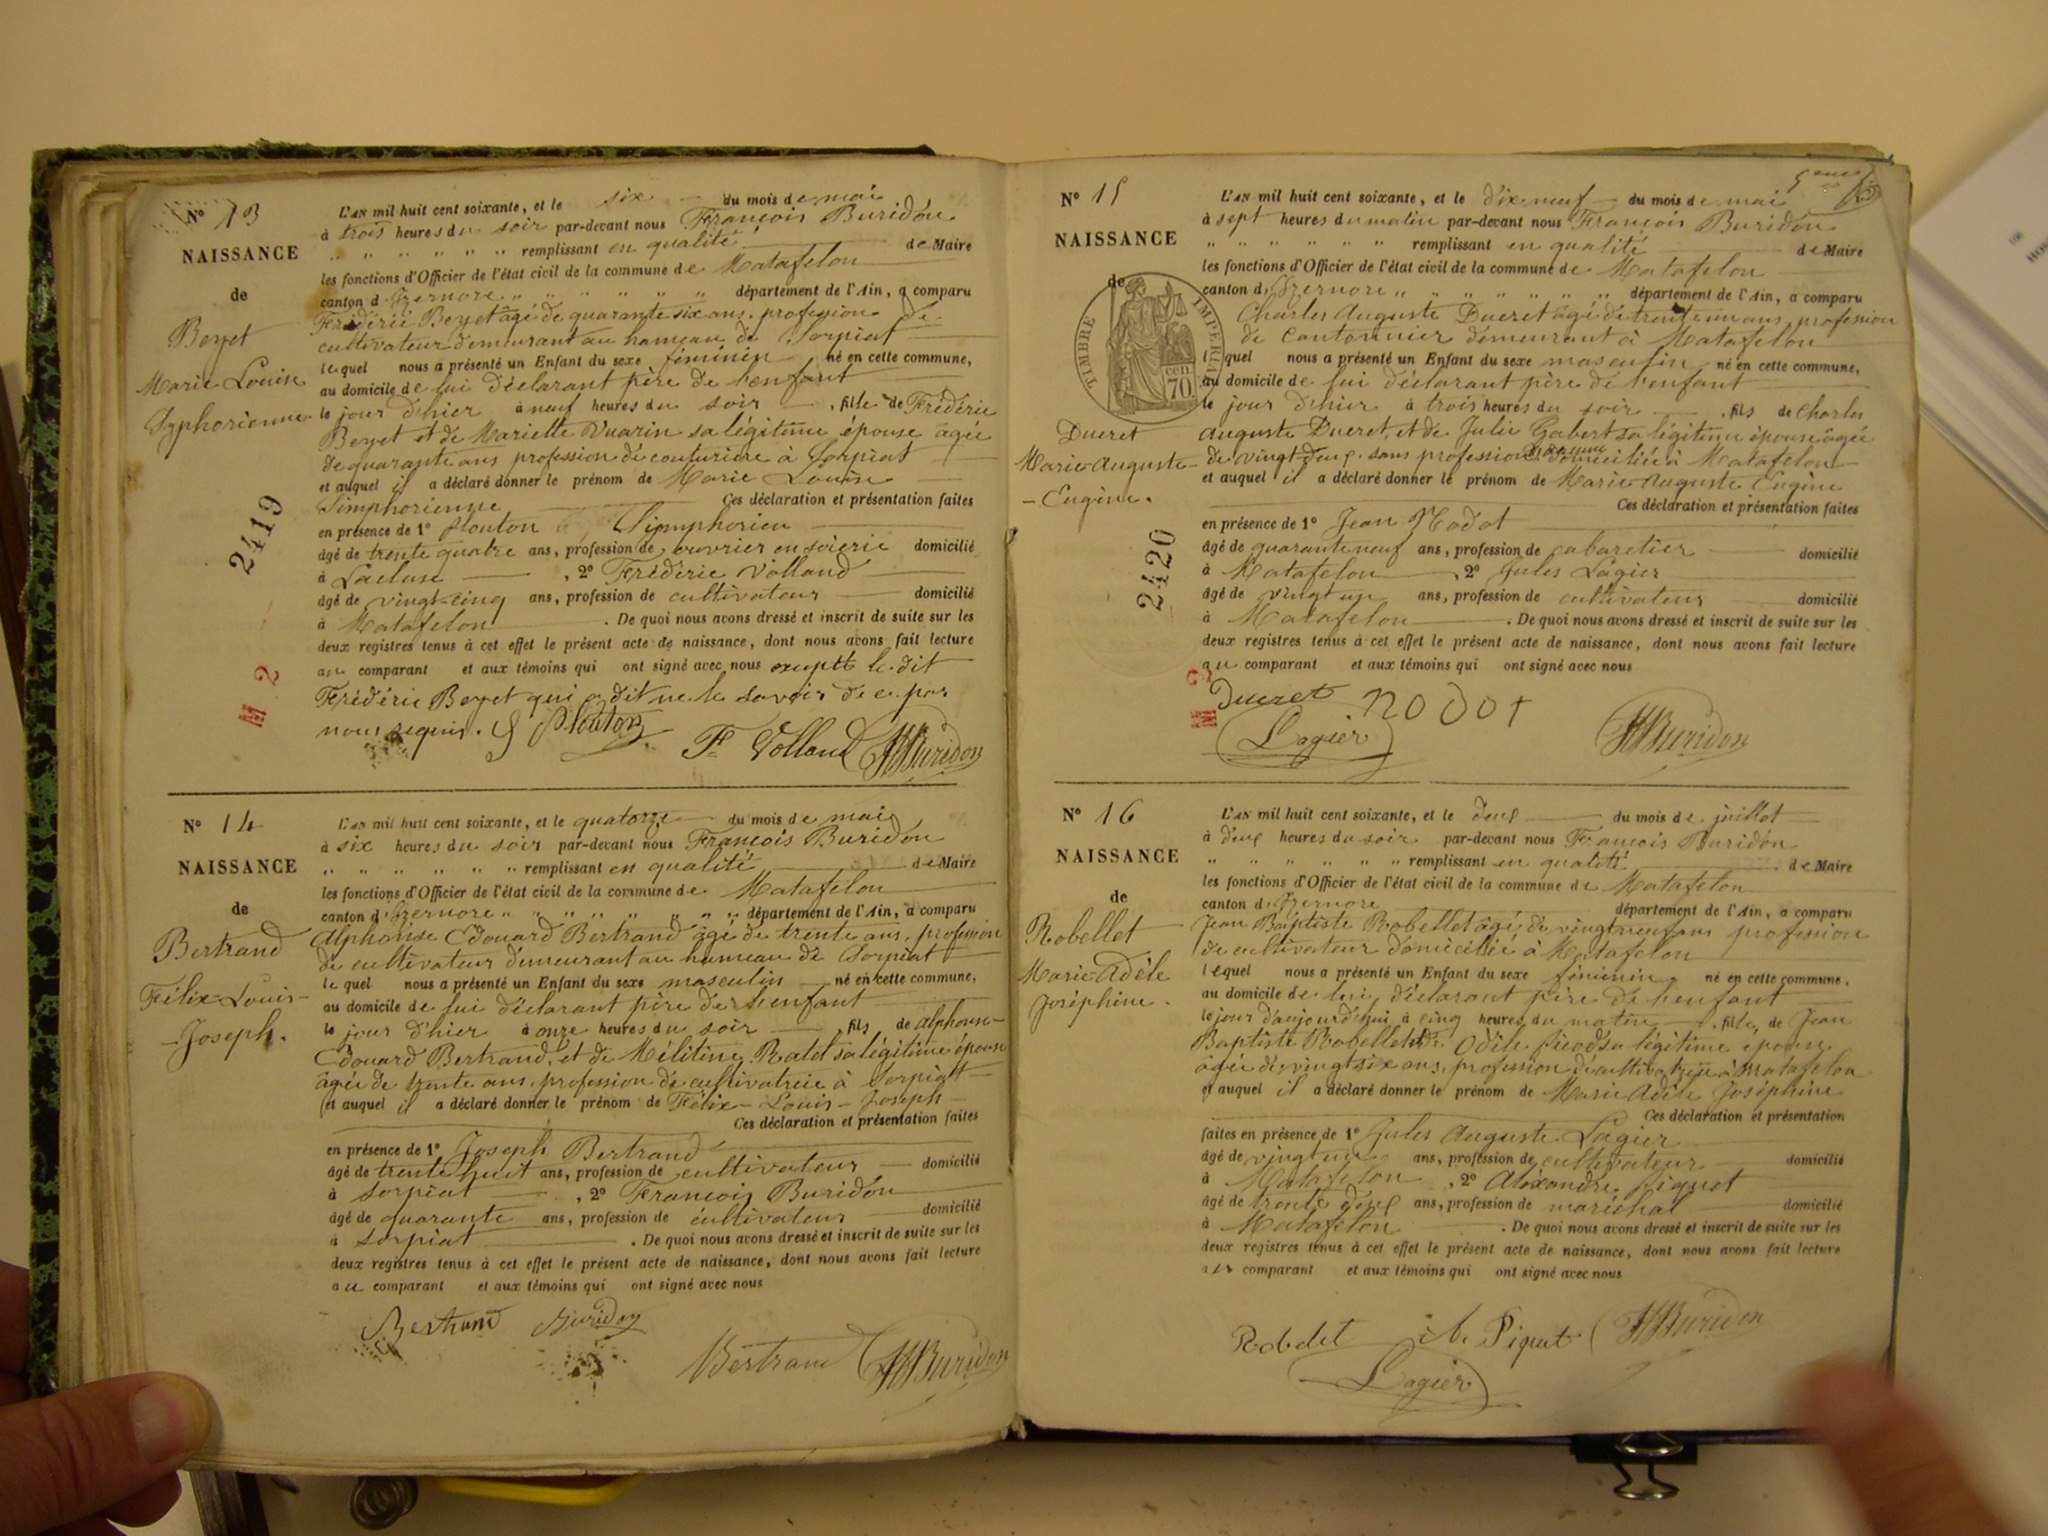 N° 13
NAISSANCE
de
Beyet
Marie Louise
Syphorienne
2419
M 2
L'AN mil huit cent soixante, et le six du mois de mai
à trois heures du soir par-devant nous François Buridon
" " " " " " remplissant en qualité de Maire
les fonctions d'Officier de l'état civil de la commune de Matafelon
canton d'Izernore " " " " " " département de l'Ain, a comparu
Frédéric Beyet âgé de quarante six ans, profession de
cultivateur demeurant au hameau de Sorpiat
lequel nous a présenté un Enfant du sexe féminin né en cette commune,
au domicile de lui déclarant père de l'enfant
le jour d'hier à neuf heures du soir , fille de Frédéric
Beyet et de Mariette Vuarin sa légitime épouse âgée
de quarante ans profession de couturière à Sorpiat
et auquel il a déclaré donner le prénom de Marie Louise
Simphorienne Ces déclaration et présentation faites
en présence de 1° Plouton Simphorien
âgé de trente quatre ans, profession de ouvrier en soierie domicilié
à Lacluse , 2° Frédéric Volland
âgé de vingt-cinq ans, profession de cultivateur domicilié
à Matafelon . De quoi nous avons dressé et inscrit de suite sur les
deux registres tenus à cet effet le présent acte de naissance, dont nous avons fait lecture
au comparant et aux témoins qui ont signé avec nous excepté le dit
Frédéric Beyet qui a dit ne le savoir de ce par
nous requis. S Plouton F Volland Buridon
N° 14
NAISSANCE
de
Bertrand
Félix-Louis-
-Joseph.
L'AN mil huit cent soixante, et le quatorze du mois de mai
à six heures du soir par-devant nous François Buridon
" " " " " " remplissant en qualité de Maire
les fonctions d'Officier de l'état civil de la commune de Matafelon
canton d'Izernore " " " " " " " département de l'Ain, a comparu
Alphonse Edouard Bertrand âgé de trente ans, profession
de cultivateur demeurant au hameau de Sorpiat
lequel nous a présenté un Enfant du sexe masculin né en cette commune,
au domicile de lui déclarant père de l'enfant
le jour d'hier à onze heures du soir , fils de Alphonse-
Edouard Bertrand, et de Mélitine Ratel sa légitime épouse
âgée de trente ans, profession de cultivatrice à Sorpiat
et auquel il a déclaré donner le prénom de Félix-Louis-Joseph-
Ces déclaration et présentation faites
en présence de 1° Joseph Bertrand
âgé de trente huit ans, profession de cultivateur domicilié
à Sorpiat , 2° François Buridon
âgé de quarante ans, profession de cultivateur domicilié
à Sorpiat . De quoi nous avons dressé et inscrit de suite sur les
deux registres tenus à cet effet le présent acte de naissance, dont nous avons fait lecture
au comparant et aux témoins qui ont signé avec nous
Bertrand Buridon
Bertrand Buridon
N° 15
NAISSANCE
de
TIMBRE IMPERIAL
70 cen
Ducret
Marie-Auguste-
-Eugène.
2420
M 3
L'AN mil huit cent soixante, et le dix neuf du mois de mai
à sept heures du matin par-devant nous François Buridon
" " " " " " remplissant en qualité de Maire
les fonctions d'Officier de l'état civil de la commune de Matafelon
canton d'Izernore " " " " " " département de l'Ain, a comparu
Charles Auguste Ducret âgé de trente un ans, profession
de cantonnier demeurant à Matafelon
lequel nous a présenté un Enfant du sexe masculin né en cette commune,
au domicile de lui déclarant père de l'enfant
le jour d'hier à trois heures du soir , fils de Charles
Auguste Ducret, et de Julie Gabert sa légitime épouse âgée
de vingt-deux, sans profession domiciliée à Matafelon
et auquel il a déclaré donner le prénom de Marie-Auguste Eugène
Ces déclaration et présentation faites
en présence de 1° Jean Nodot
âgé de quarante neuf ans, profession de cabaretier domicilié
à Matafelon , 2° Jules Lagier
âgé de vingt un ans, profession de cultivateur domicilié
à Matafelon . De quoi nous avons dressé et inscrit de suite sur les
deux registres tenus à cet effet le présent acte de naissance, dont nous avons fait lecture
au comparant et aux témoins qui ont signé avec nous
Ducret Nodot
Lagier Buridon
N° 16
NAISSANCE
de
Robellet
Marie-Adèle
Joséphine.
L'AN mil huit cent soixante, et le deux du mois de juillet
à deux heures du soir par-devant nous François Buridon
" " " " " " remplissant en qualité de Maire
les fonctions d'Officier de l'état civil de la commune de Matafelon
canton d'Izernore département de l'Ain, a comparu
Jean Baptiste Robellet âgé de vingt neuf ans profession
de cultivateur domicilié à Matafelon
lequel nous a présenté un Enfant du sexe féminin, né en cette commune,
au domicile de lui, déclarant père de l'enfant
le jour d'aujourd'hui à cinq heures du matin , fille de Jean
Baptiste Robellet et de Odile Picod sa légitime épouse
âgée de vingt six ans, profession de cultivatrice à Matafelon
et auquel il a déclaré donner le prénom de Marie Adèle Joséphine
Ces déclaration et présentation
faites en présence de 1° Jules Auguste Lagier
âgé de vingt un ans, profession de cultivateur domicilié
à Matafelon , 2° Alexandre Piquet
âgé de trente deux ans, profession de maréchal domicilié
à Matafelon . De quoi nous avons dressé et inscrit de suite sur les
deux registres tenus à cet effet le présent acte de naissance, dont nous avons fait lecture
au comparant et aux témoins qui ont signé avec nous
Robelet A. Piquet Buridon
Lagier